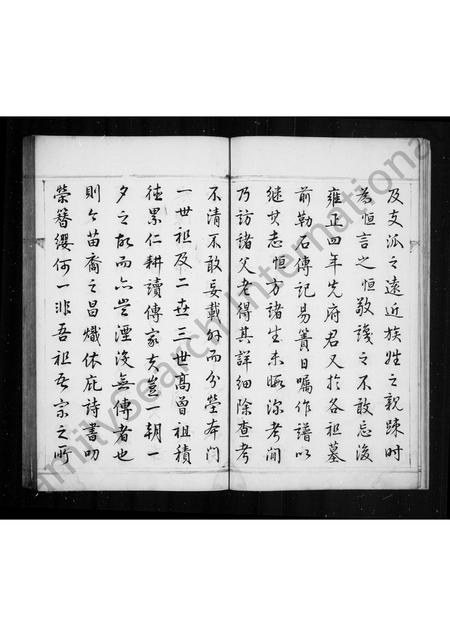 及支派之遠近族姓之親踈時
為恒言之恒敬識之不敢忘後
雍正四年先府君又於各祖墓
前勒石傳記易簀日囑作譜以
继其志恒方諸生未暇深考间
乃訪諸父老得其詳細除查考
不清不敢妄載外而分塋本门
一世祖及二世三世髙曾祖積
徳累仁耕讀傳家夫豈一朝一
夕之故而亦豈湮没無傳者也
則今苗裔之昌熾依庇詩書叨
榮簪纓何一非吾祖吾宗之所
FamilySearch International